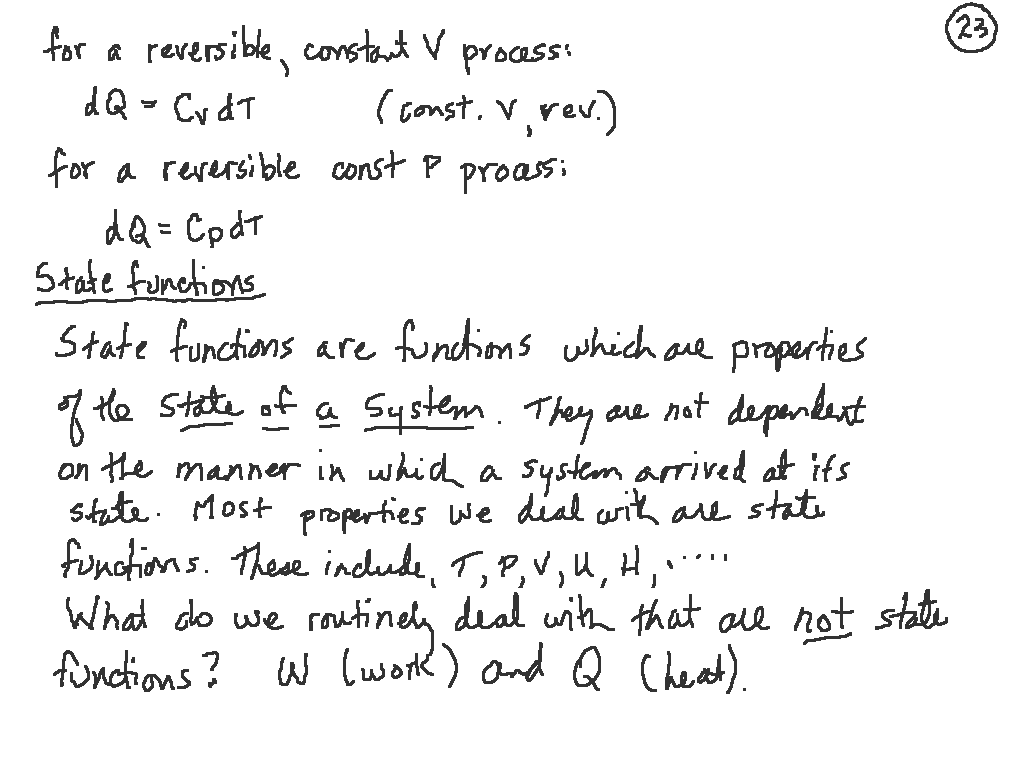 23
for a reversible, constant V process:
dQ = Cv dT (const. V, rev.)
for a reversible const P process:
dQ = Cp dT
State functions
State functions are functions which are properties
of the state of a system. They are not dependent
on the manner in which a system arrived at its
state. Most properties we deal with are state
functions. These include, T, P, V, U, H, .....
What do we routinely deal with that are not state
functions? W (work) and Q (heat).